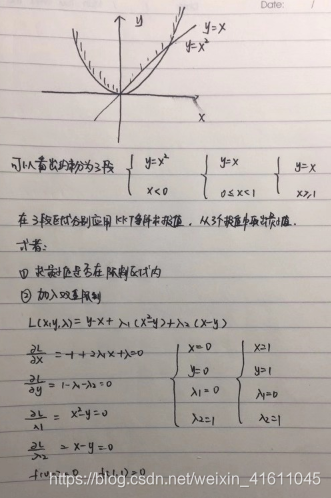 Date: /
y
y=x
y=x²
x
可以看出约束分为3段 { y=x² x<0 { y=x 0≤x<1 { y=x² x≥1
在3段区域分别应用KKT条件求极值,从3个极值中取出最小值.
或者:
① 求最小值是否在限制区域内
② 加入约束限制
L(x,y,λ) = y-x + λ₁(x²-y) + λ₂(x-y)
∂L/∂x = -1+2λ₁x+λ₂=0
∂L/∂y = 1-λ₁-λ₂=0
∂L/λ₁ = x²-y=0
∂L/λ₂ = x-y=0
{ x=0 y=0 λ₁=0 λ₂=1
{ x=1 y=1 λ₁=0 λ₂=1
https://blog.csdn.net/weixin_41611045